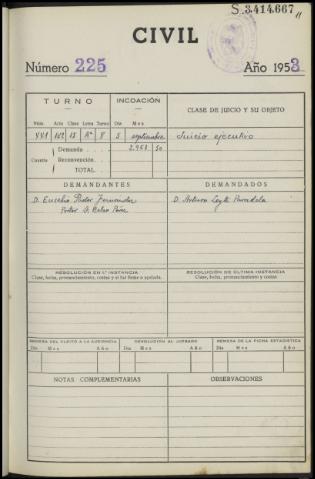 S.3.414.667
CIVIL
Número 225 Año 1953
TURNO INCOACIÓN CLASE DE JUICIO Y SU OBJETO
Núm. Acto Clase Letra Turno Día Mes
5 septiembre Juicio ejecutivo
Cuantía Demanda 2.968 50
Reconvención
TOTAL
DEMANDANTES DEMANDADOS
D. Eucelio Fernandez D. Arturo
RESOLUCIÓN EN 1.ª INSTANCIA RESOLUCIÓN DE ÚLTIMA INSTANCIA
Clase, fecha, pronunciamiento, costas y si fué firme o apelada. Clase, fecha, pronunciamiento y costas
REMESA DEL PLEITO A LA AUDIENCIA DEVOLUCIÓN AL JUZGADO REMESA DE LA FICHA ESTADÍSTICA
Día Mes Año Día Mes Año Día Mes Año
NOTAS COMPLEMENTARIAS OBSERVACIONES